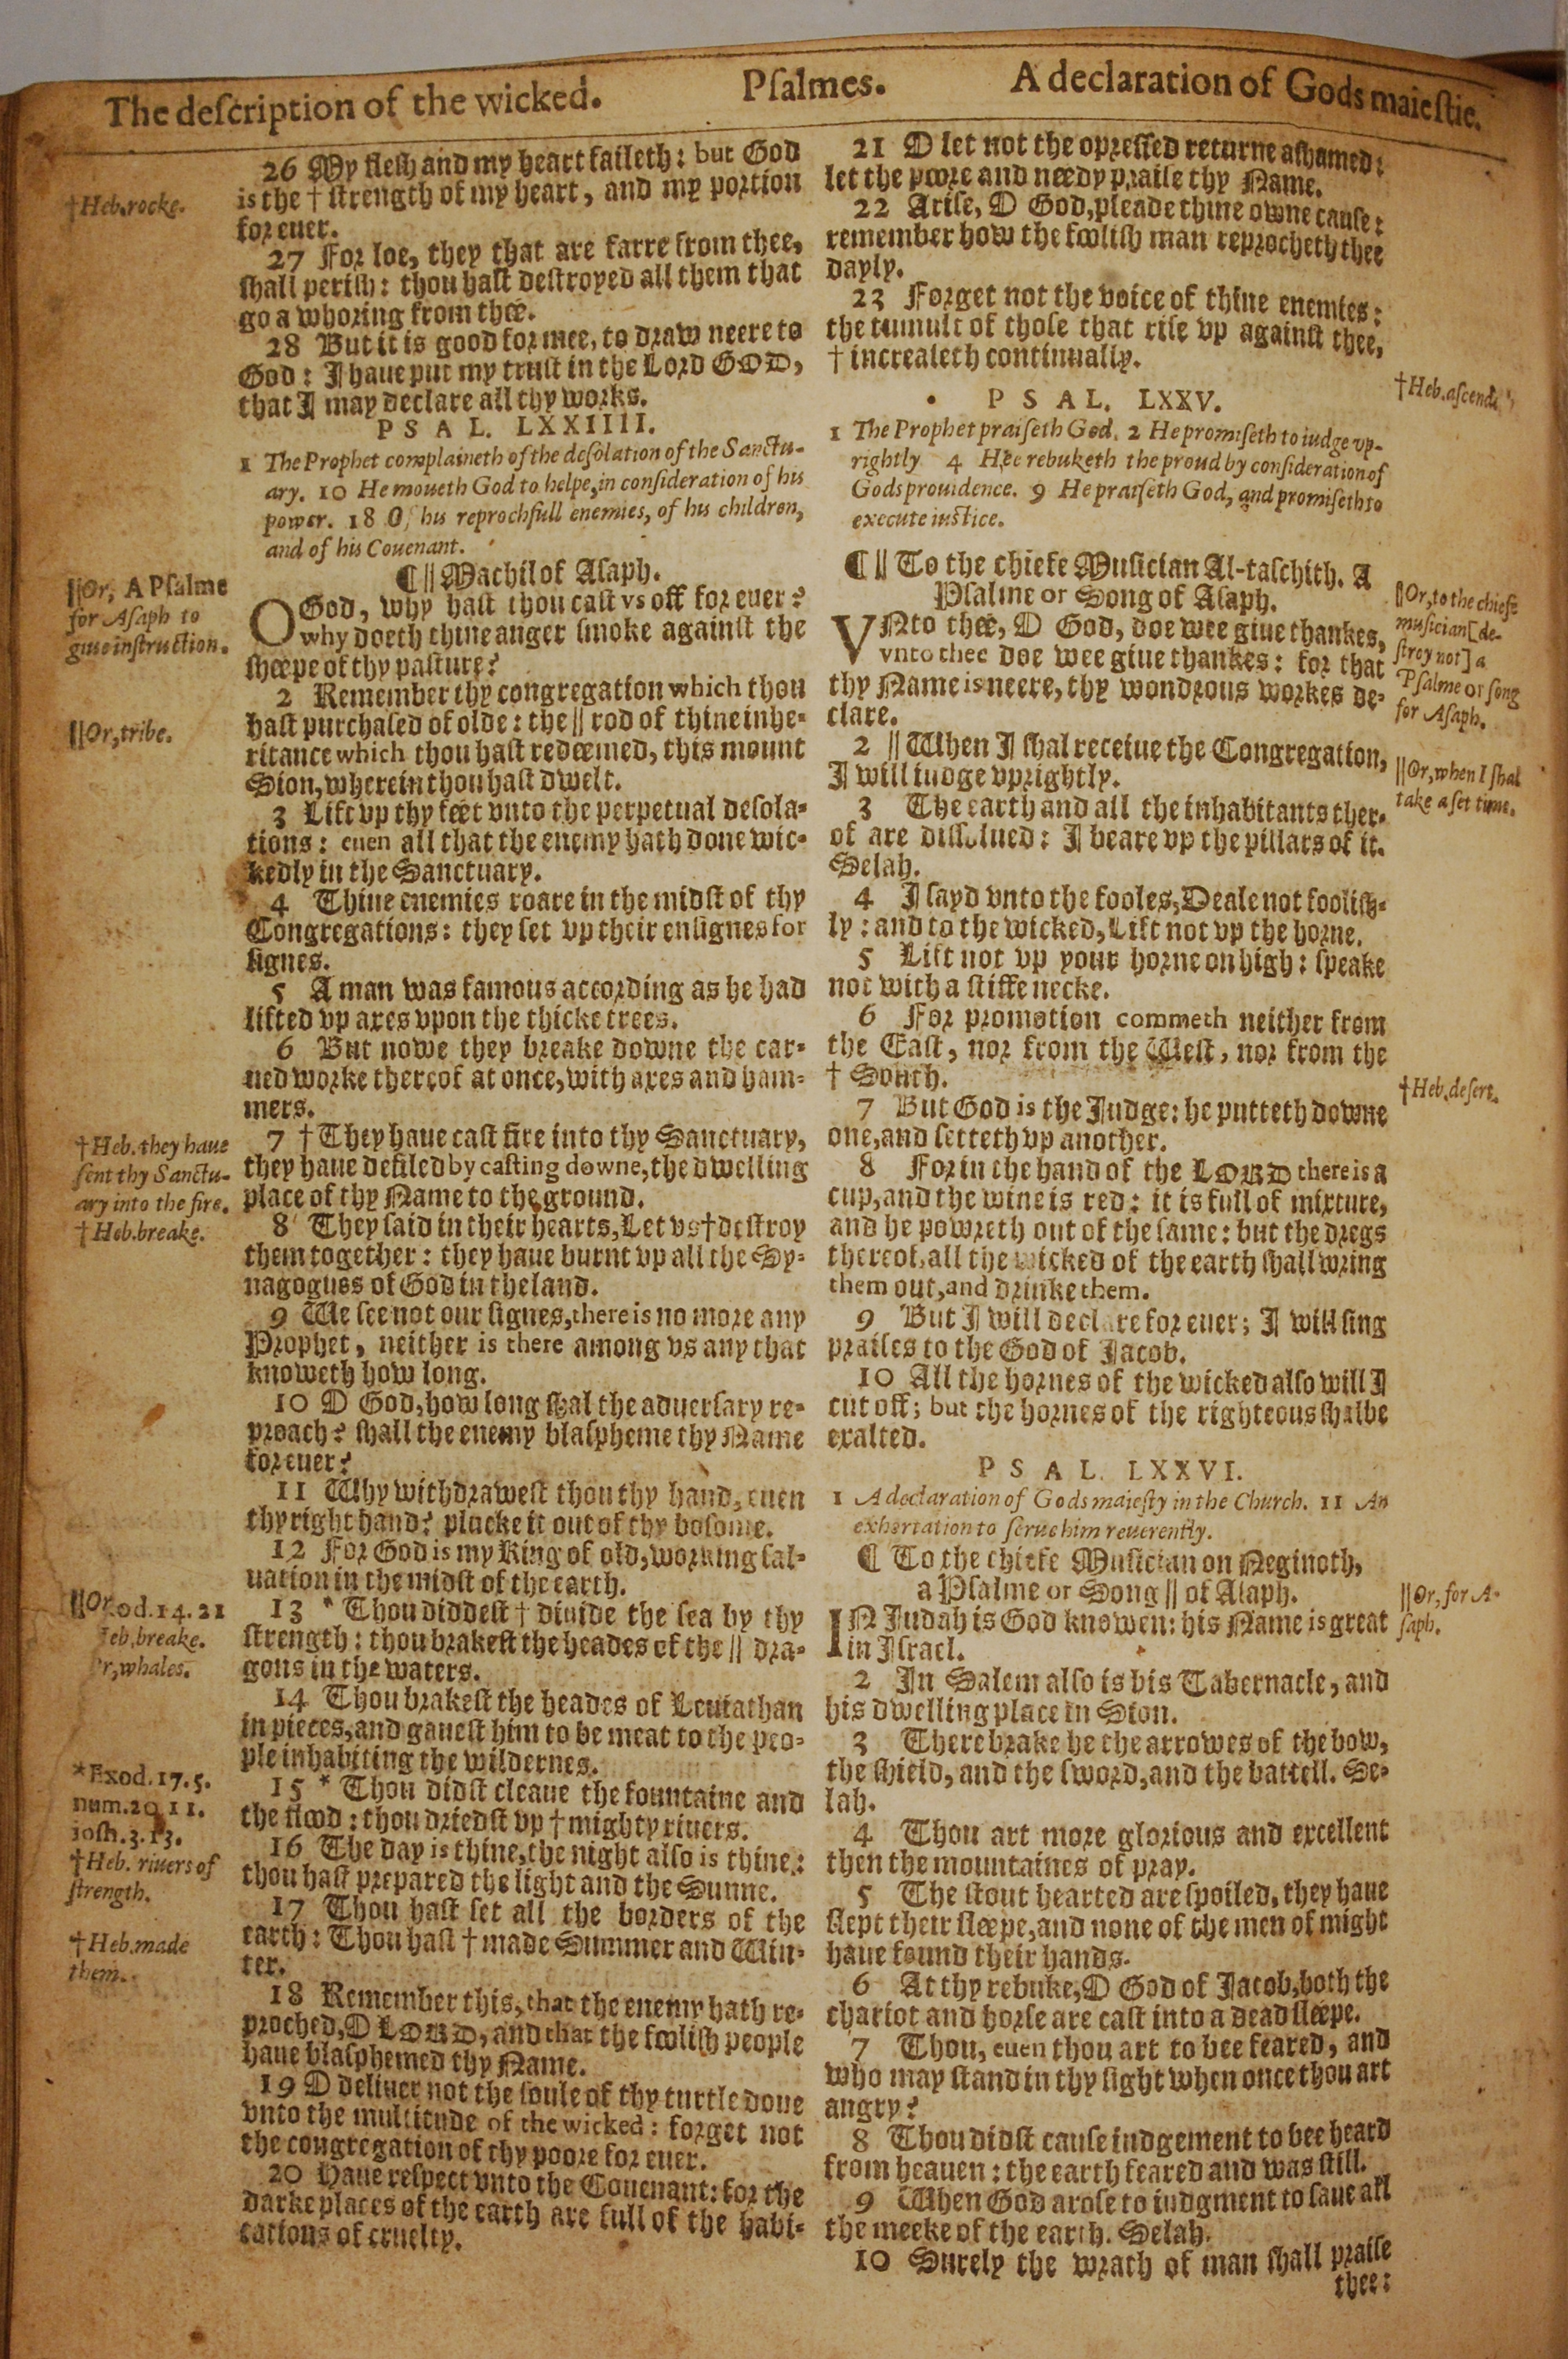 The deſcription of the wicked. Pſalmes. A declaration of Gods maieſtie.
26 My fleſh and my heart faileth: but God
is the † ſtrength of my heart, and my portion
for euer.
†Heb. rocke.
27 For loe, they that are farre from thee,
ſhall periſh: thou haſt deſtroyed all them that
go a whoring from thee.
28 But it is good for mee, to draw neere to
God: I haue put my truſt in the Lord GOD,
that I may declare all thy works.
PSAL. LXXIIII.
1 The Prophet complaineth of the deſolation of the Sanctu-
ary. 10 He moueth God to helpe, in conſideration of his
power. 18 Of his reprochfull enemies, of his children,
and of his Couenant.
¶ || Maſchil of Aſaph.
||Or, A Pſalme
for Aſaph to
giue inſtruction.
O God, why haſt thou caſt vs off for euer?
why doeth thine anger ſmoke againſt the
ſheepe of thy paſture?
2 Remember thy congregation which thou
haſt purchaſed of olde: the || rod of thine inhe-
ritance which thou haſt redeemed, this mount
Sion, wherein thou haſt dwelt.
||Or, tribe.
3 Lift vp thy feet vnto the perpetual deſola-
tions: euen all that the enemy hath done wic-
kedly in the Sanctuary.
4 Thine enemies roare in the midſt of thy
Congregations: they ſet vp their enſignes for
ſignes.
5 A man was famous according as he had
lifted vp axes vpon the thicke trees.
6 But nowe they breake downe the car-
ued worke thereof at once, with axes and ham-
mers.
7 † They haue caſt fire into thy Sanctuary,
they haue defiled by caſting downe, the dwelling
place of thy Name to the ground.
†Heb. they haue
ſent thy Sanctu-
ary into the fire.
8 They ſaid in their hearts, Let vs † deſtroy
them together: they haue burnt vp all the Sy-
nagogues of God in the land.
†Heb. breake.
9 We ſee not our ſignes, there is no more any
Prophet, neither is there among vs any that
knoweth how long.
10 O God, how long ſhal the aduerſary re-
proach? ſhall the enemy blaſpheme thy Name
for euer?
11 Why withdraweſt thou thy hand, euen
thy right hand? plucke it out of thy boſome.
12 For God is my King of old, working ſal-
uation in the midſt of the earth.
13 * Thou diddeſt † diuide the ſea by thy
ſtrength: thou brakeſt the heades of the || dra-
gons in the waters.
||Or od. 14. 21
eb. breake.
r, whales.
14 Thou brakeſt the heades of Leuiathan
in pieces, and gaueſt him to be meat to the peo-
ple inhabiting the wildernes.
15 * Thou didſt cleaue the fountaine and
the flood: thou driedſt vp † mighty riuers.
*Exod. 17. 5.
num. 20 11.
ioſh. 3. 13.
†Heb. riuers of
ſtrength.
16 The day is thine, the night alſo is thine:
thou haſt prepared the light and the Sunne.
17 Thou haſt ſet all the borders of the
earth: Thou haſt † made Summer and Win-
ter.
†Heb. made
them.
18 Remember this, that the enemy hath re-
proched, O LORD, and that the fooliſh people
haue blaſphemed thy Name.
19 O deliuer not the ſoule of thy turtle doue
vnto the multitude of the wicked: forget not
the congregation of thy poore for euer.
20 Haue reſpect vnto the Couenant: for the
darke places of the earth are full of the habi-
tations of cruelty.
21 O let not the opreſſed returne aſhamed:
let the poore and needy praiſe thy Name.
22 Ariſe, O God, pleade thine owne cauſe:
remember how the fooliſh man reprocheth thee
dayly.
23 Forget not the voice of thine enemies:
the tumult of thoſe that riſe vp againſt thee,
† increaſeth continually.
†Heb. aſcende
PSAL. LXXV.
1 The Prophet praiſeth God. 2 He promiſeth to iudge vp-
rightly 4 Hee rebuketh the proud by conſideration of
Gods prouidence. 9 He praiſeth God, and promiſeth to
execute iuſtice.
¶ || To the chiefe Muſician Al-taſchith. A
Pſalme or Song of Aſaph.
||Or, to the chiefe
muſician [de-
ſtroy not] a
Pſalme or ſong
for Aſaph.
VNto thee, O God, doe wee giue thankes,
vnto thee doe wee giue thankes: for that
thy Name is neere, thy wondrous workes de-
clare.
2 || When I ſhal receiue the Congregation,
I will iudge vprightly.
||Or, when I ſhal
take a ſet time.
3 The earth and all the inhabitants ther-
of are diſſolued: I beare vp the pillars of it.
Selah.
4 I ſayd vnto the fooles, Deale not fooliſh-
ly: and to the wicked, Lift not vp the horne.
5 Lift not vp your horne on high: ſpeake
not with a ſtiffe necke.
6 For promotion commeth neither from
the Eaſt, nor from the Weſt, nor from the
† South.
†Heb. deſert.
7 But God is the Judge: he putteth downe
one, and ſetteth vp another.
8 For in the hand of the LORD there is a
cup, and the wine is red: it is full of mixture,
and he powreth out of the ſame: but the dregs
thereof, all the wicked of the earth ſhall wring
them out, and drinke them.
9 But I will declare for euer; I will ſing
praiſes to the God of Jacob.
10 All the hornes of the wicked alſo will I
cut off; but the hornes of the righteous ſhalbe
exalted.
PSAL. LXXVI.
1 A declaration of Gods maieſty in the Church. 11 An
exhortation to ſerue him reuerently.
¶ To the chiefe Muſician on Neginoth,
a Pſalme or Song || of Aſaph.
||Or, for A-
ſaph.
IN Judah is God knowen: his Name is great
in Iſrael.
2 In Salem alſo is his Tabernacle, and
his dwelling place in Sion.
3 There brake he the arrowes of the bow,
the ſhield, and the ſword, and the battell. Se-
lah.
4 Thou art more glorious and excellent
then the mountaines of pray.
5 The ſtout hearted are ſpoiled, they haue
ſlept their ſleepe, and none of the men of might
haue found their hands.
6 At thy rebuke, O God of Jacob, both the
chariot and horſe are caſt into a dead ſleepe.
7 Thou, euen thou art to bee feared, and
who may ſtand in thy ſight when once thou art
angry?
8 Thou didſt cauſe iudgement to bee heard
from heauen: the earth feared and was ſtill.
9 When God aroſe to iudgment to ſaue all
the meeke of the earth. Selah.
10 Surely the wrath of man ſhall praiſe
thee: